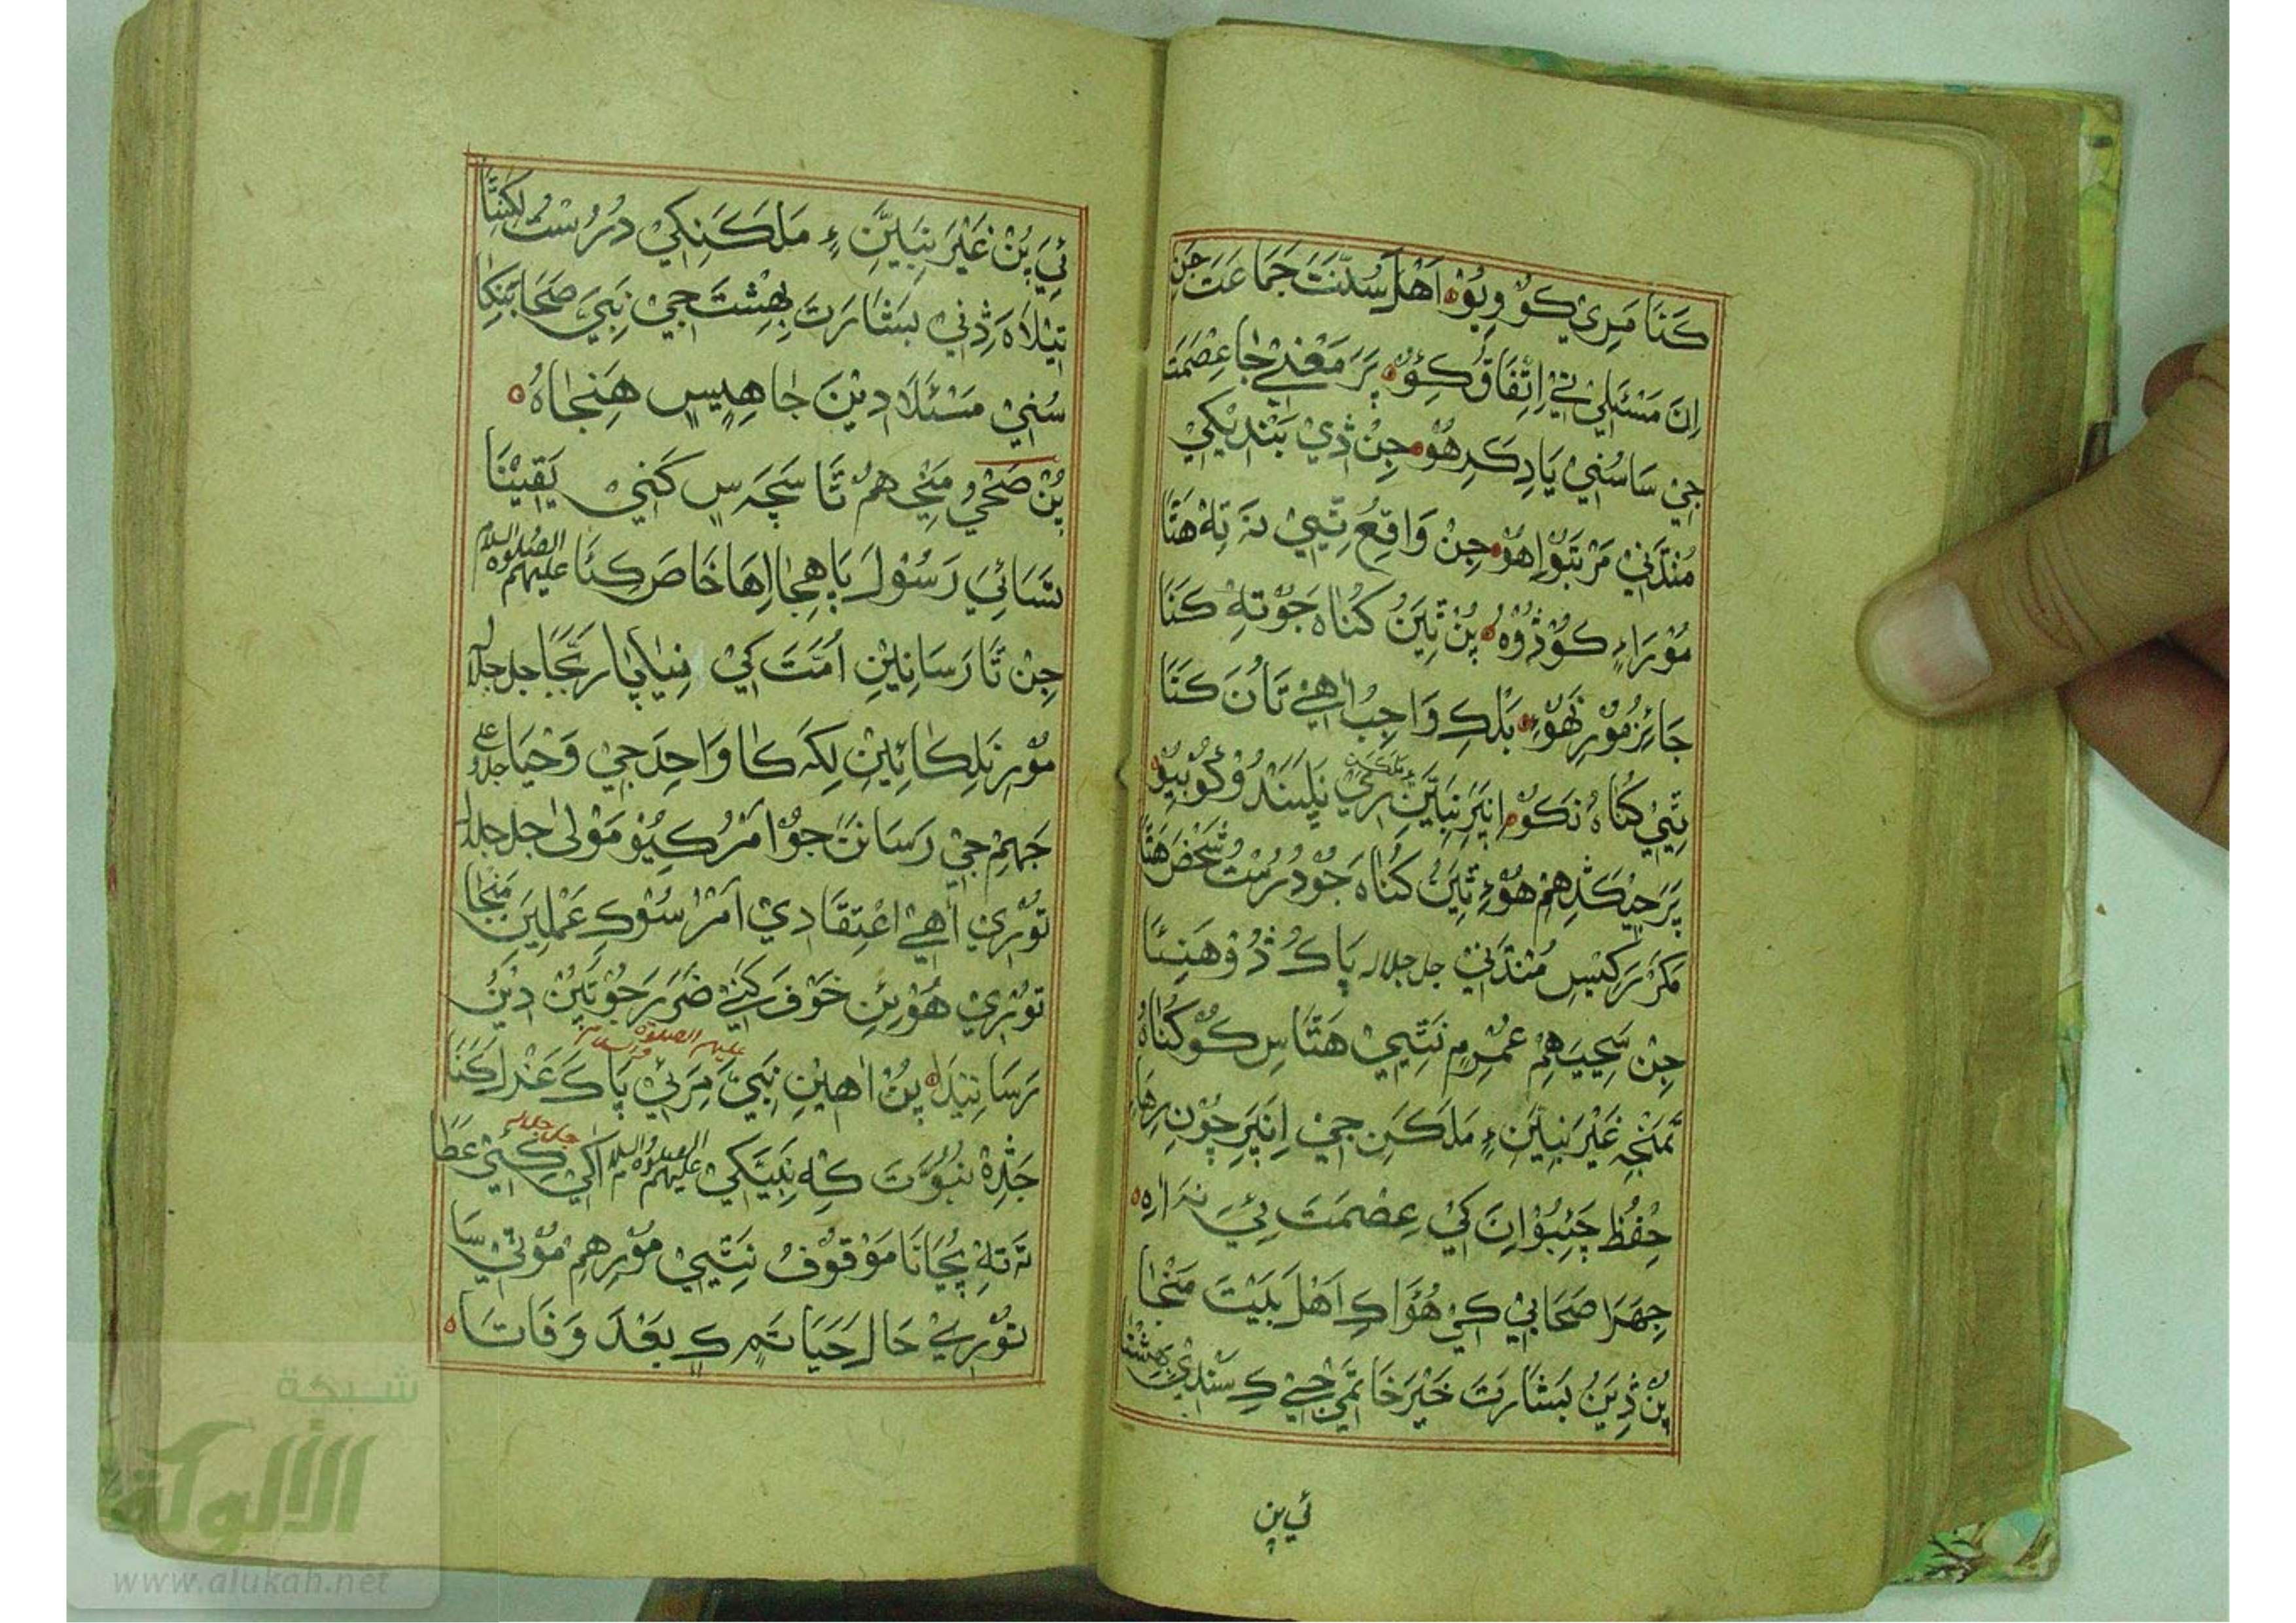 كَنَا مَرِيْ كُوْ وِيُوْ اَهْلَ سُنَّتَ جَمَاعَتَ جَنِ
اِنَ مَسْئَلِيْ تَيْ اِتِّفَاقُ كِئُوْ پَرَ مَعْنٰي جَا عِصْمَتَ
جِيْ سَا سُنِيْ يَادِ كَرِ هُوْ جِنْ ڎِيْ بَنْدِيْكِيْ
مُنْڌَنِيْ مَرْتَبُوْ اِهُوْ جِنْ وَاقِعُ ٿِيِيْ نَه تِهْ هَتَا
مُوْرَاءٍ كُوْڎُوْهُ پِنْ ٿِيَنُ كُنَاهَ جَوْ تِهْ كَنَا
جَائِزُ مُوْرِ نَهُوْءِ بَلْكِ وَاجِبُ اٰهِيْ تَاُنَ كَنَا
ٿِيِيْ كُنَاهُ نَكُوْ اِنَپَرِ نَبِيَّنِ ءٍ مَلَكَنِ رِيْ نَپَسَنْدُ وَكُوْ بِيُوْ
پَرَ جِيْكَڎِهِمْ هُوْءِ ٿِيَنُ كُنَاهَ جُوْ دُرُسْتُ شَخْصَ هَتَا
مَكَرْ نَرَكِيْسِ مُنْڌَنِيْ جل جلاله پَاكُ ڎُوْهَنِئَا
جِنْ سَڃِيَيهِمْ عُمُرِمِ نَٿِيِيْ هَتَاسِ كُوْ كُنَاهُ
تَمَنْجِهِ غَيْرَ نَبِيَّنِ ءٍ مَلَكَنِ جِيْ اِنَپَرِ چُوْنِ رِهَاءِ
حِفْظُ چَئِبُوْ اِنَ كَيْ عِصْمَتَ ئِيَ نَه اٰهِ
جِهَڙَا صَحَابِيْ كَيْ هُئَا كِ اَهْلَ بَيْتَ مَنْجَا
پِنْ ڎِيَنُ بَشَارَتَ خَيْرَ خَاتَمِيْ جِيْ كِ سَنْدِيْ بِهِشْتَا
ئي پن
ئِيَ پُنْ غَيْرَ نَبِيَّنِ ءٍ مَلَكَنِكِيْ دُرُسْتُ لِكِنِتَّا
تِيْلَاهَ ڎِنِيْ بَشَارَتَ بِهِشْتَ جِيْ نَبِيَ صَحَابَنِكَا
سُنِيْ مَسْئَلَا دِيْنَ جَا هِيِسِ هَنِجَاهُ
پُنْ صَحْيُ مَڃِ هِمُ تَا سَچَه سِ كَنِيْ يَقِيْنَا
سَّپَائِيَ رَسُوْلَ پَاهِجَا اِهَا خَاصَ كِئَا عليهم الصلوة والسلام
جِنْ تَا رَسَانِيْنِ اُمَّتَ كَيْ نِيَاپَا رَبَّجَا جل جلاله
مُوْرِ نَلِكَائِيْنِ لِكَه كَا وَاحِدَ جِيْ وَحْيَا جل وعلى
جَهِمْ جِيْ رَسَانَنَ جُوْ اَمْرُ كِيُوْ مَوْلٰى جل جلاله
تُوْرِيْ اٰهِيْ اِعْتِقَادِيْ اَمْرُ سُوْكِ عَمْلِيَنَ مَنْجَا
تُوْرِيْ هُوْنِئِنِ خَوْفَ كَنِيْ ضَرَرَ جُوْ ٿِيَنْ دِيْنَ
رَسَانِيْدَاهُ پُنْ اٰهِيْنِ نَبِيَ مِرَئِيْ پَاكَ عَذَرَا كَنَا عليهم الصلوة والسلام
جَڎِهْ نُبُوَّتَ كِهْ نَبِيَّكِيْ عليهم الصلوة والسلام اَكِيْ كِئِيْ عَطَا جل جلاله
نَه تِهْ پُڃَانَا مَوْقُوْفُ نَٿِيِيْ مُوْرِهِمْ مُوْتِيْ سَا
تُوْرِيْ حَالَ حَيَاتَمِ كِ بَعْدَ وَفَاتَا
شبكة
الألوكة
www.alukah.net